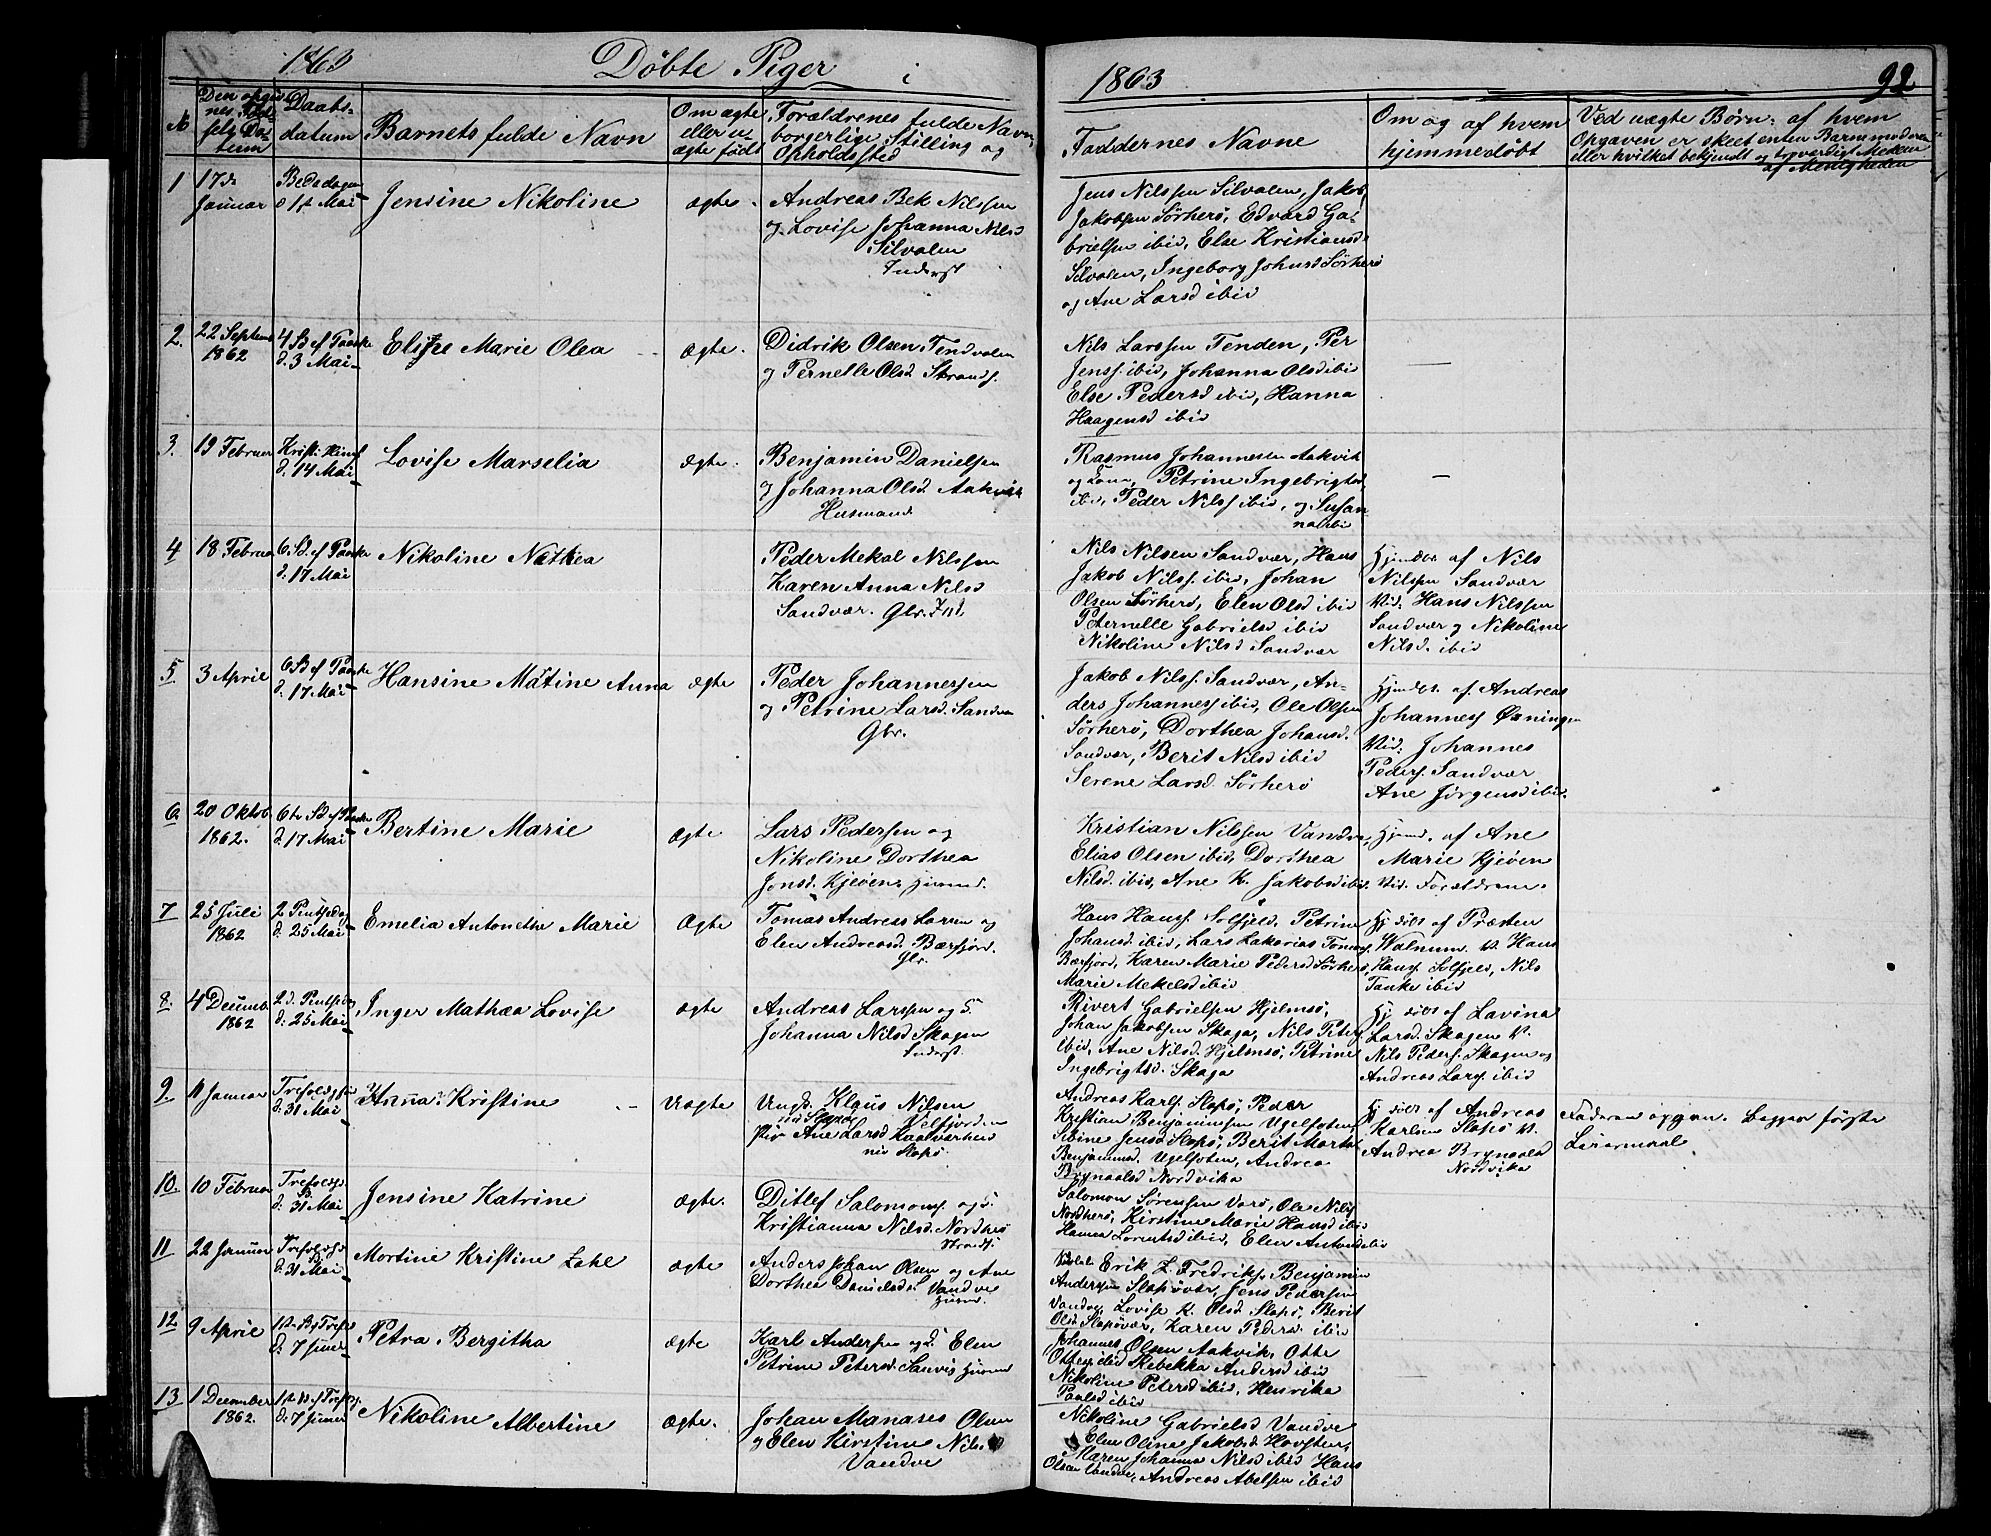 1863 Døbte Piger i 1863 92
№
Den opgivnes Fødselsdatum
Daabsdatum
Barnets fulde Navn
Om ægte eller uægte født
Forældrenes fulde Navn, borgerlige Stilling og Opholdssted
Faddernes Navne
Om og af hvem hjemmedøbt
Ved uægte Børn: af hvem
Opgaven er skeet enten Barnemoderen
eller hvilket bekjendt og troværdigt Medlem
af Menigheden
1 17de Januar
Bededagen d 1st Mai
Jensine Nikoline
ægte
Andreas Bek Nilssen
og Lovise Johanna Nilsd
Silvalen
Inderst
Jens Nilssen Silvalen, Jakob
Jakobsen Sørherø, Edvard Ga-
brielsen ibid, Else Kristiansd
Silvalen, Ingeborg Johnsd Sørherø
og Ane Larsd ibid
2. 22 Septemb 1862
4 S ef Paaske d. 3 Mai
Elsine Marie Olea
ægte.
Didrik Olsen Tendvalen
og Pernelle Olsd. Strands.
Nils Larssen Tenden, Per
Jenss. ibid, Johanna Olsd ibid
Else Pedersd ibid, Hanna
Haagensd ibid
3. 19 Februar
Kristi Himf d. 14 Mai
Lovise Marselia
ægte.
Benjamin Danielsen
og Johanna Olsd. Aakvik
Husmand
Rasmus Johannesen Aakvik
og Kone, Petrine Ingebrigtsd
ibid, Peder Nilss ibid, og Susan-
na ibid
4 18 Februar
6. S. ef Paaske d. 17 Mai
Nikoline Nathea
Peder Mekal Nilssen
Karen Anna Nilsd
Sandvær. Gbr. Ind.
Nils Nilsen Sandvær, Hans
Jakob Nilss. ibid, Johan
Olsen Sørherø, Elen Olsd ibid
Peternelle Gabrielsd ibid
Nikoline Nilsd Sandvær
Hjemdøbt af Nils
Nilssen Sandvær
Vid. Hans Nilssen
Sandvær og Nikoline
Nilsd. ibid
5. 3 April
6 S ef Paaske d. 17 Mai
Hansine Matine Anna
ægte
Peder Johannessen
og Petrine Larsd. Sandvær
Gbr.
Jakob Nilss. Sandvær, An-
ders Johanness ibid, Ole Olsen
Sørherø, Dorthea Johansd.
Sandvær, Berit Nilsd ibid
Serene Larsd. Sørherø
Hjemdøbt af Andreas
Johanness Øxningen
Vid: Johannes
Peders. Sandvær
Ane Jørgensd ibid.
6. 20 Oktob. 1862.
6te S. ef Paaske d. 17 Mai
Bertine Marie
ægte
Lars Pedersen og
Nikoline Dorthea
Jonsd. Kjeøen, Husmd.
Kristian Nilssen Vandve,
Elias Olsen ibid, Dorthea
Nilsd. ibid, Ane K. Jakobsd ibid.
Hjemd. af Ane
Marie Kjeøen
Vid. Forældrene.
7 25 Juli 1862
2 Pintsedag d. 25 Mai
Emelia Antonette Marie
ægte
Tomas Andreas Larsen og
Elen Andreasd. Bærfjord.
Gbr.
Hans Hanss. Solfjeld, Petrine
Johansd. ibid, Lars Zakarias Tomass
Bærfjord, Karen Marie Pedersd Sørherø,
Marie Mekelsd ibid
Hj. døbt af Præsten
Walnum. V. Hans
Hanss. Solfjeld, Nils
Tanke ibid
8. 4 December 1862
2. d. Pintsedag d. 25 Mai
Inger Mathea Lovise
ægte
Andreas Larssen og
Johanna Nilsd Skagen
Inderst.
Rivert Gabrielsen Hjelmsø,
Johan Jakobsen Skaga, Nils Peters
ibid, Ane Nilsd. Hjelmsø, Petrine
Ingebrigtsd. Skaga
Hj. døbt af Lavina
Larsd. Skagen V.
Nils Peders. Skagen og
Andreas Larss. ibid
9. 11 Januar
d. 31 Mai
Anna Kristine
Uægte
Ungk. Klaus Nilsen
Velfjorden
Pige Ane Larsd
Slapø.
Andreas Karls. Slapø, Peder
Kristian Benjaminsen Ugelfoten,
Sibine Jensd Slapø, Berit Marta
Benjaminsd. Ugelfoten, Andrea
Brynaalsd Nordvika
Hj. døbt af Andreas
Karlsen Slapø V.
Andrea Brynaalsd
Nordvika
Faderen opgav. Begges første
Leiermaal
10. 10 Februar
d. 31 Mai
Jensine Katrine
ægte.
Ditlef Salomons. og
Kristianna Nilsd. Nordherø
Strands.
Salomon Sørensen Varø, Ole Nilss
Nordherø, Kirstine Marie Hansd ibid
Hanna Lorentsd ibid, Elen Antonsd ibid
11 22 Januar
d. 31 Mai
Mortine Kristine Zahl
ægte
Anders Johan Olsen og Ane
Dorthea Danielsd. Vandve
Husmd.
Erik Z. Fredriks. Benjamin
Andersen Slapøvær, Jens Pedersen
Vandve, Lovise K. Olsd Slapø, Berit
Olsd Slapøvær, Karen Pedersd. ibid
12 9 April
d. 7 Juni
Petra Bergitha
ægte
Karl Andersen og Elen
Petrine Petersd. Sanvis Husmd
Johannes Olsen Aakvik, Otte
Ottesen ibid Rebekka Andersd ibid
Nikoline Petersd ibid, Henrika
Paulsd ibid
13 1 December 1862.
d. 7 Juni
Nikoline Albertine
ægte.
Johan Manases Olsen
og Elen Kirstine Nilsd
Vandve
Nikoline Gabrielsd Vandve
Elen Oline Jakobsd. Hovsten,
Maren Johanna Nilsd ibid Hans
Olsen Vandve, Andreas Abelsen ibid